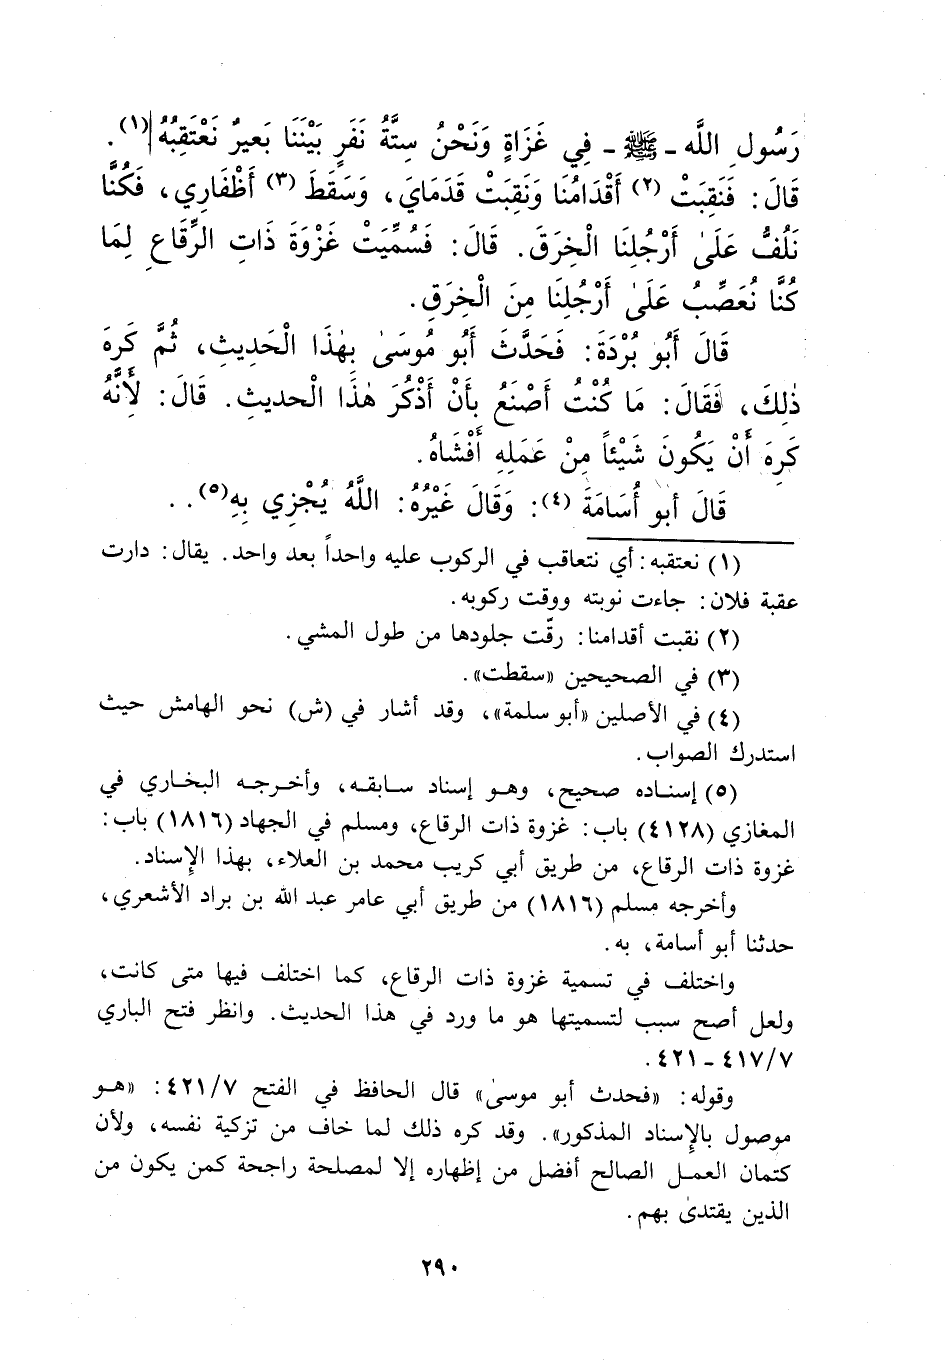 رَسُولِ اللَّه ـ ﷺ ـ فِي غَزَاةٍ وَنَحْنُ سِتَّةُ نَفَرٍ بَيْنَنَا بَعيرٌ نَعْتَقِبُهُ (١).
قَالَ: فَنَقِبَتْ (٢) أَقْدَامُنَا وَنَقِبَتْ قَدَمَايَ، وَسَقَطَ (٣) أَظْفَارِي، فَكُنَّا
نَلُفُّ عَلَىٰ أَرْجُلِنَا الْخِرَقَ. قَالَ: فَسُمِّيَتْ غَزْوَةَ ذَاتِ الرِّقَاعِ لِمَا
كُنَّا نُعَصِّبُ عَلَىٰ أَرْجُلِنَا مِنَ الْخِرَقِ.
قَالَ أَبُو بُرْدَةَ: فَحَدَّثَ أَبُو مُوسَىٰ بِهٰذَا الْحَدِيثِ، ثُمَّ كَرِهَ
ذٰلِكَ، فَقَالَ: مَا كُنْتُ أَصْنَعُ بِأَنْ أَذْكُرَ هٰذَا الْحديثِ. قَالَ: لِأَنَّهُ
كَرِهَ أَنْ يَكُونَ شَيْئاً مِنْ عَمَلِهِ أَفْشَاهُ.
قَالَ أَبو أُسَامَةَ (٤): وَقَالَ غَيْرُهُ: اللَّهُ يُجْزِي بِهِ(٥) . .
(١) نعتقبه: أي نتعاقب في الركوب عليه واحداً بعد واحد. يقال: دارت
عقبة فلان: جاءت نوبته ووقت ركوبه.
(٢) نقبت أقدامنا: رقّت جلودها من طول المشي.
(٣) في الصحيحين «سقطت».
(٤) في الأصلين «أبو سلمة»، وقد أشار في (ش) نحو الهامش حيث
استدرك الصواب.
(٥) إسناده صحيح، وهو إسناد سابقه، وأخرجه البخاري في
المغازي (٤١٢٨) باب: غزوة ذات الرقاع، ومسلم في الجهاد (١٨١٦) باب:
غزوة ذات الرقاع، من طريق أبي كريب محمد بن العلاء، بهذا الإسناد.
وأخرجه مسلم (١٨١٦) من طريق أبي عامر عبد الله بن براد الأشعري،
حدثنا أبو أسامة، به.
واختلف في تسمية غزوة ذات الرقاع، كما اختلف فيها متى كانت،
ولعل أصح سبب لتسميتها هو ما ورد في هذا الحديث. وانظر فتح الباري
٤١٧/٧ ـ ٤٢١.
وقوله: «فحدث أبو موسىٰ» قال الحافظ في الفتح ٤٢١/٧: «هو
موصول بالإسناد المذكور». وقد كره ذلك لما خاف من تزكية نفسه، ولأن
كتمان العمل الصالح أفضل من إظهاره إلا لمصلحة راجحة كمن يكون من
الذين يقتدىٰ بهم.
٢٩٠